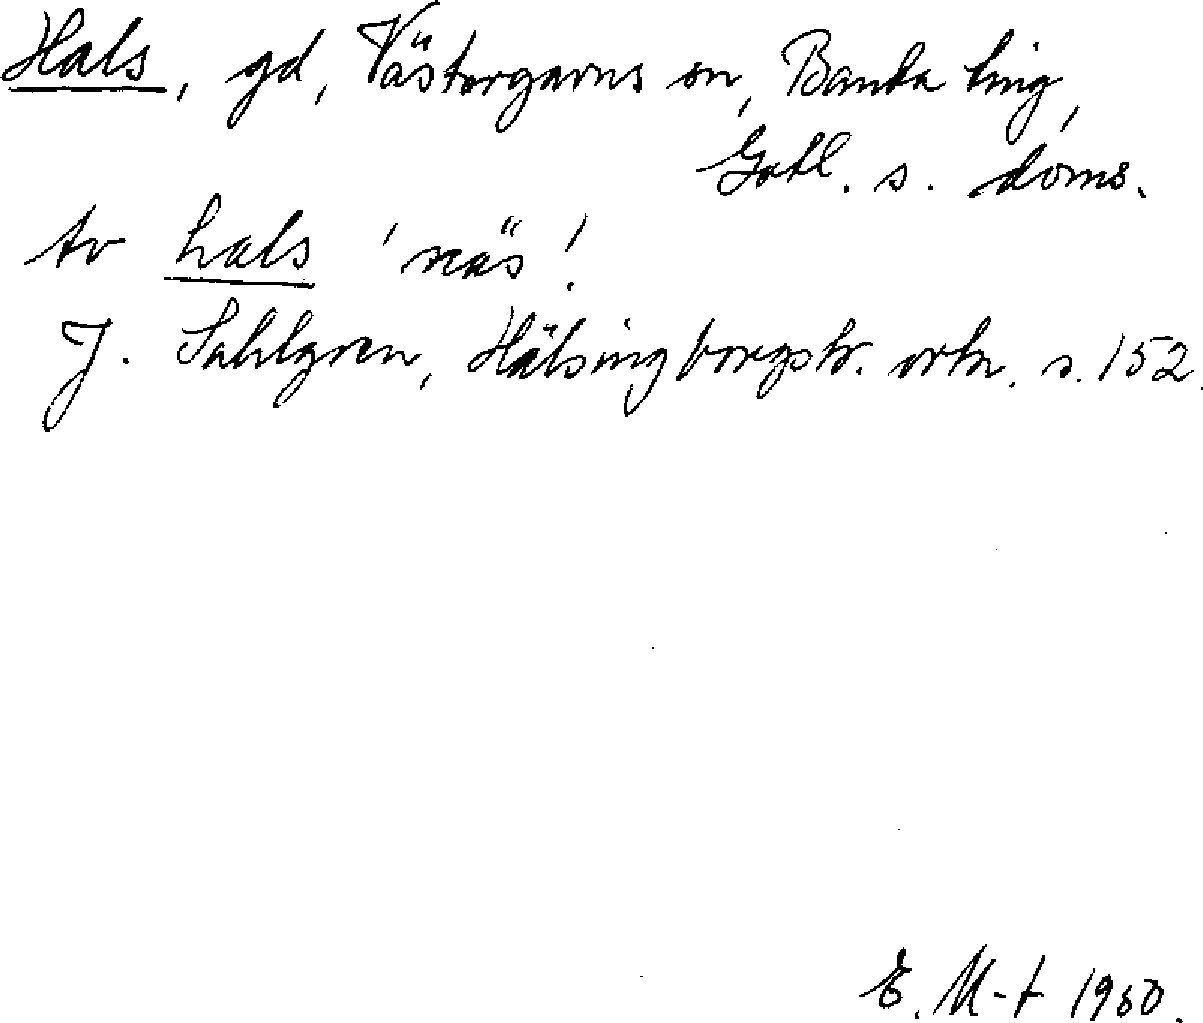 Hals, gd, Västergarns sn, Banda ting,
Gotl. s. doms.
Av hals 'näs'.
J. Sahlgren, Hälsingborgstr. ortn. s. 152.
E. M-t 1960.